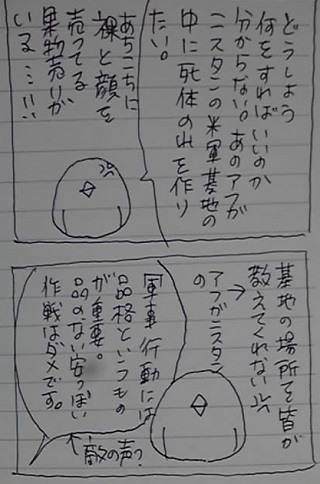 どうしよう
何をすればいいのか
分からない。あのアフガ
ニスタンの米軍基地の
中に死体の山を作り
たい。
あちこちに
裸と顔を
売ってる、
果物売りが
いる…!!
基地の場所を皆が
教えてくれない
アフガニスタン
の
軍事行動には
品格というもの
が重要。
品のない安っぽい
作戦はダメです。
敵の声?